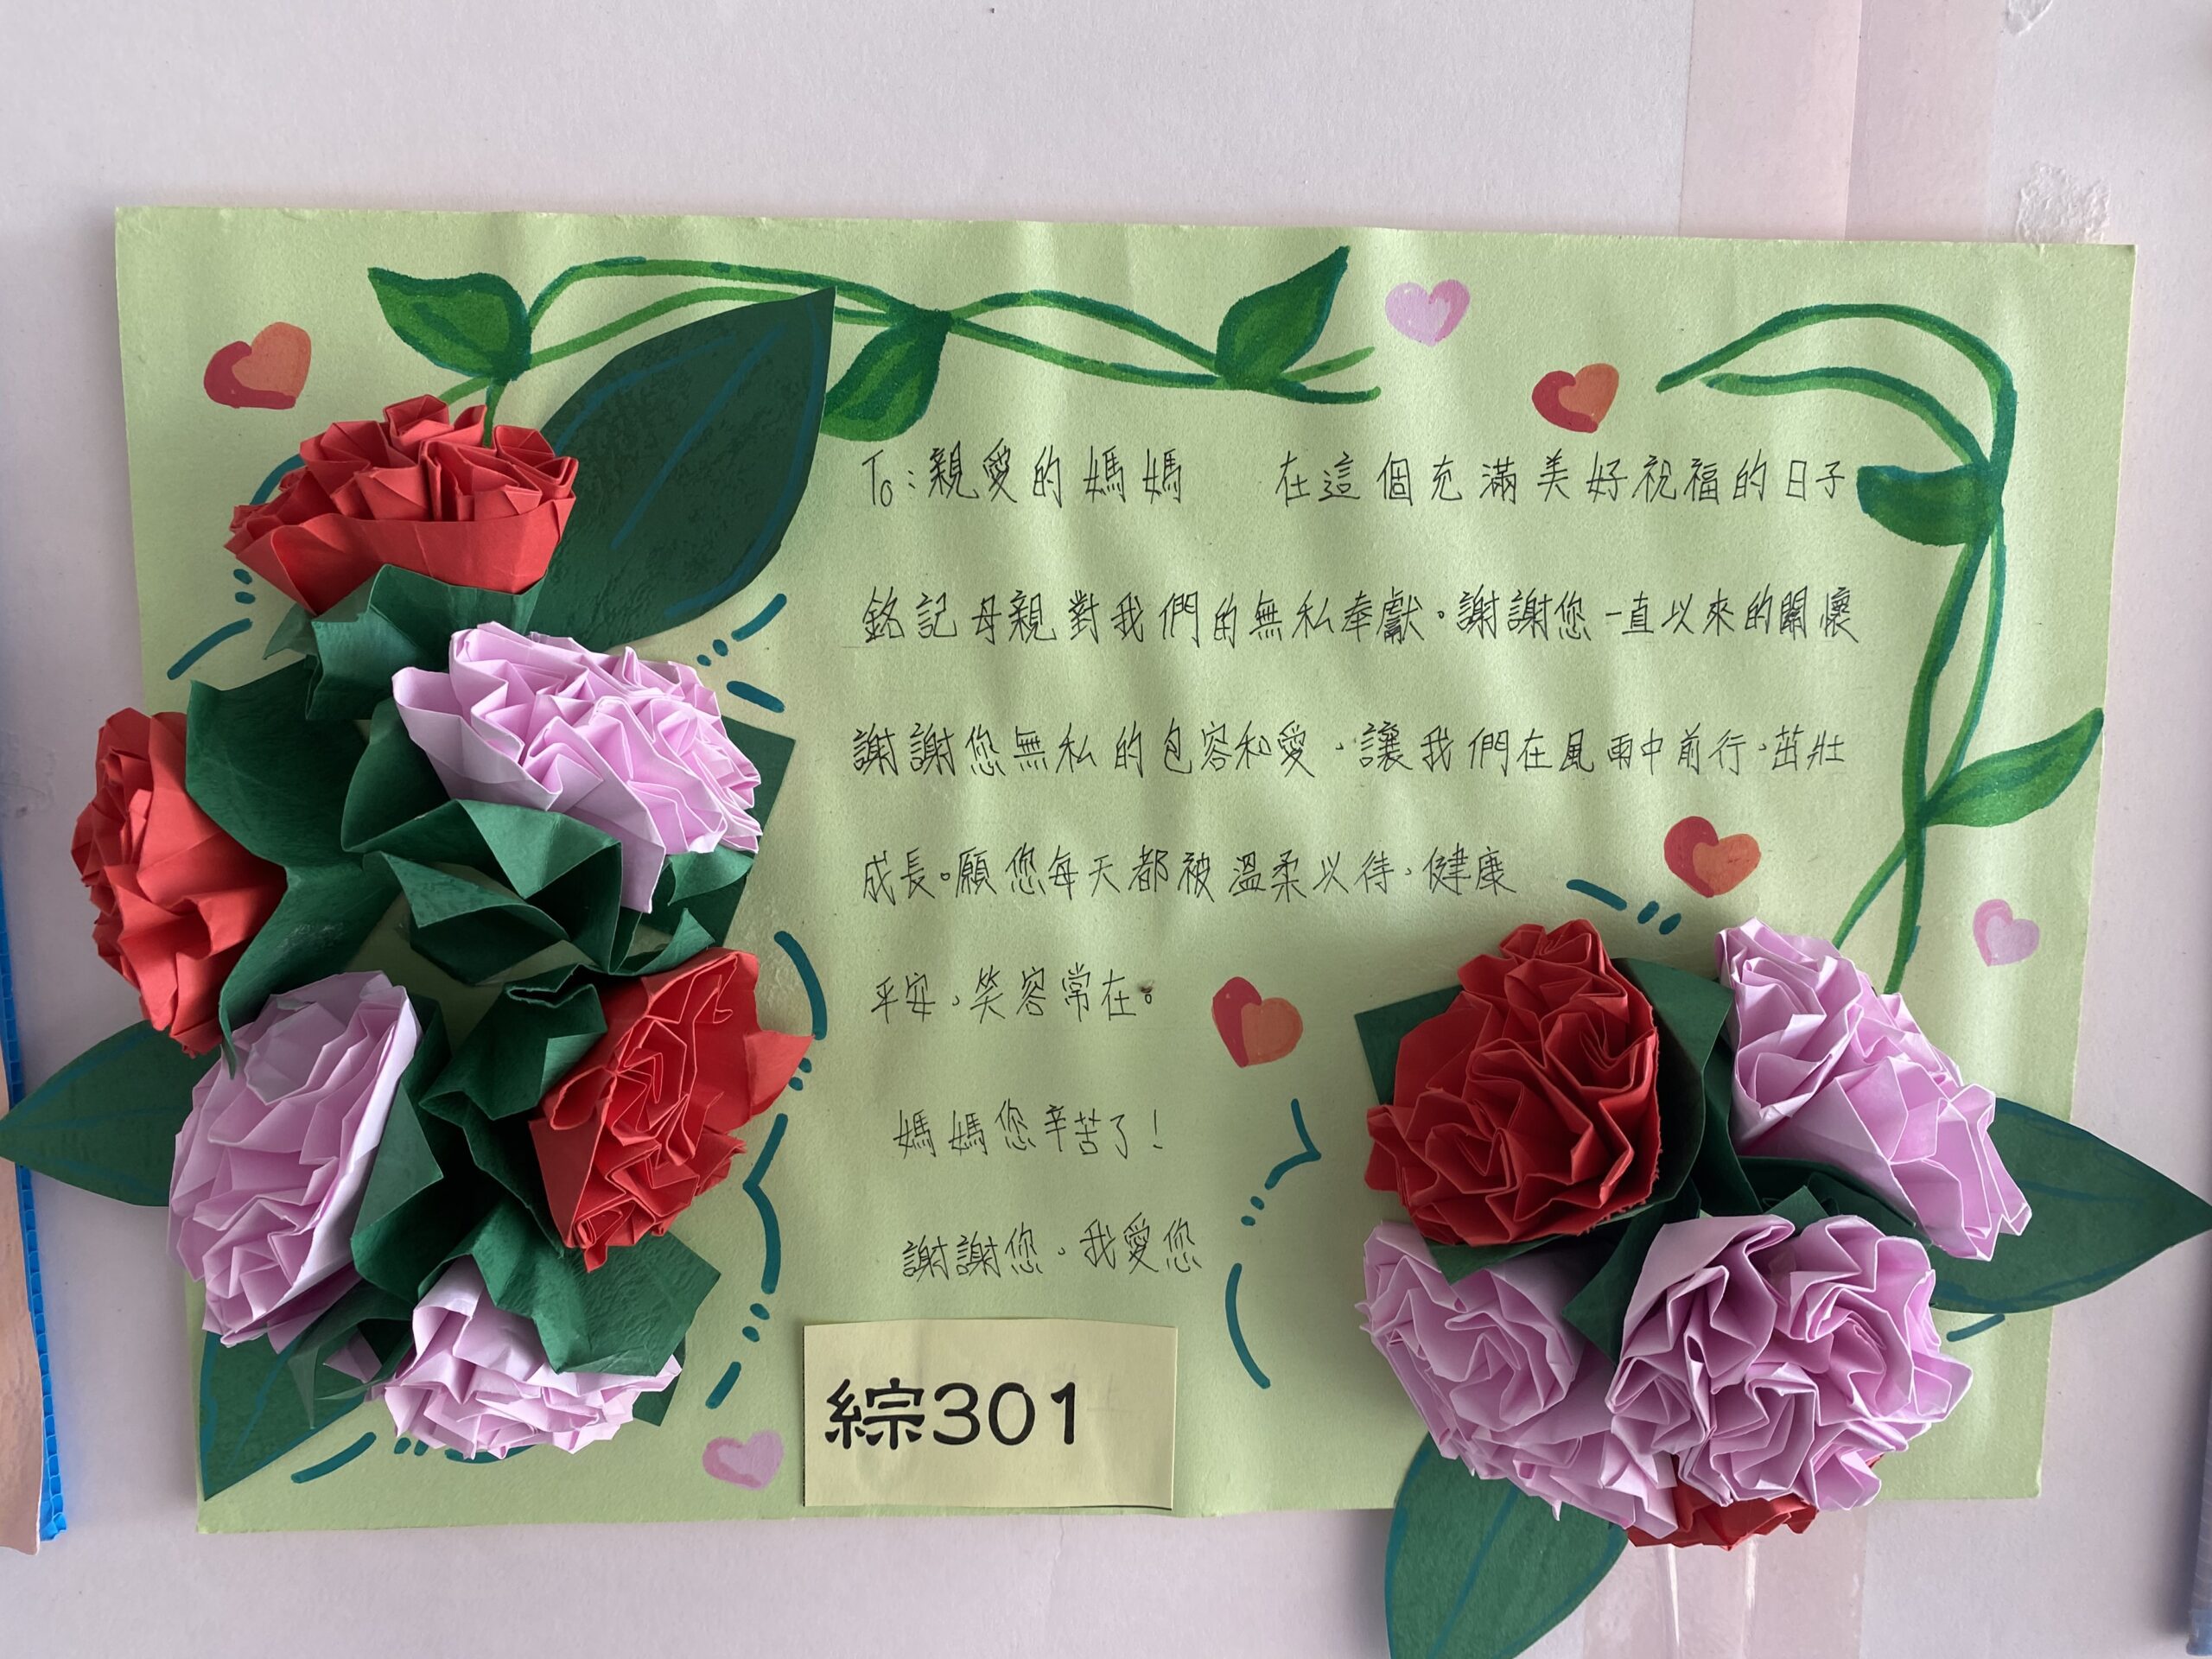 To:親愛的媽媽 在這個充滿美好祝福的日子
銘記母親對我們的無私奉獻。謝謝您一直以來的關懷
謝謝您無私的包容和愛,讓我們在風雨中前行,茁壯
成長。願您每天都被溫柔以待,健康
平安,笑容常在。
媽媽您辛苦了!
謝謝您,我愛您
綜301